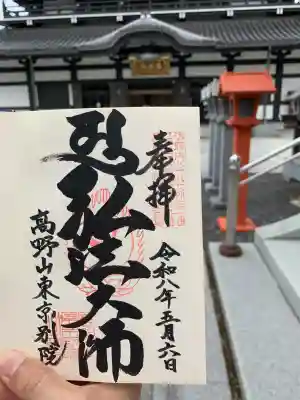 奉拝
令和八年五月六日
弘法大師
高野山東京別院